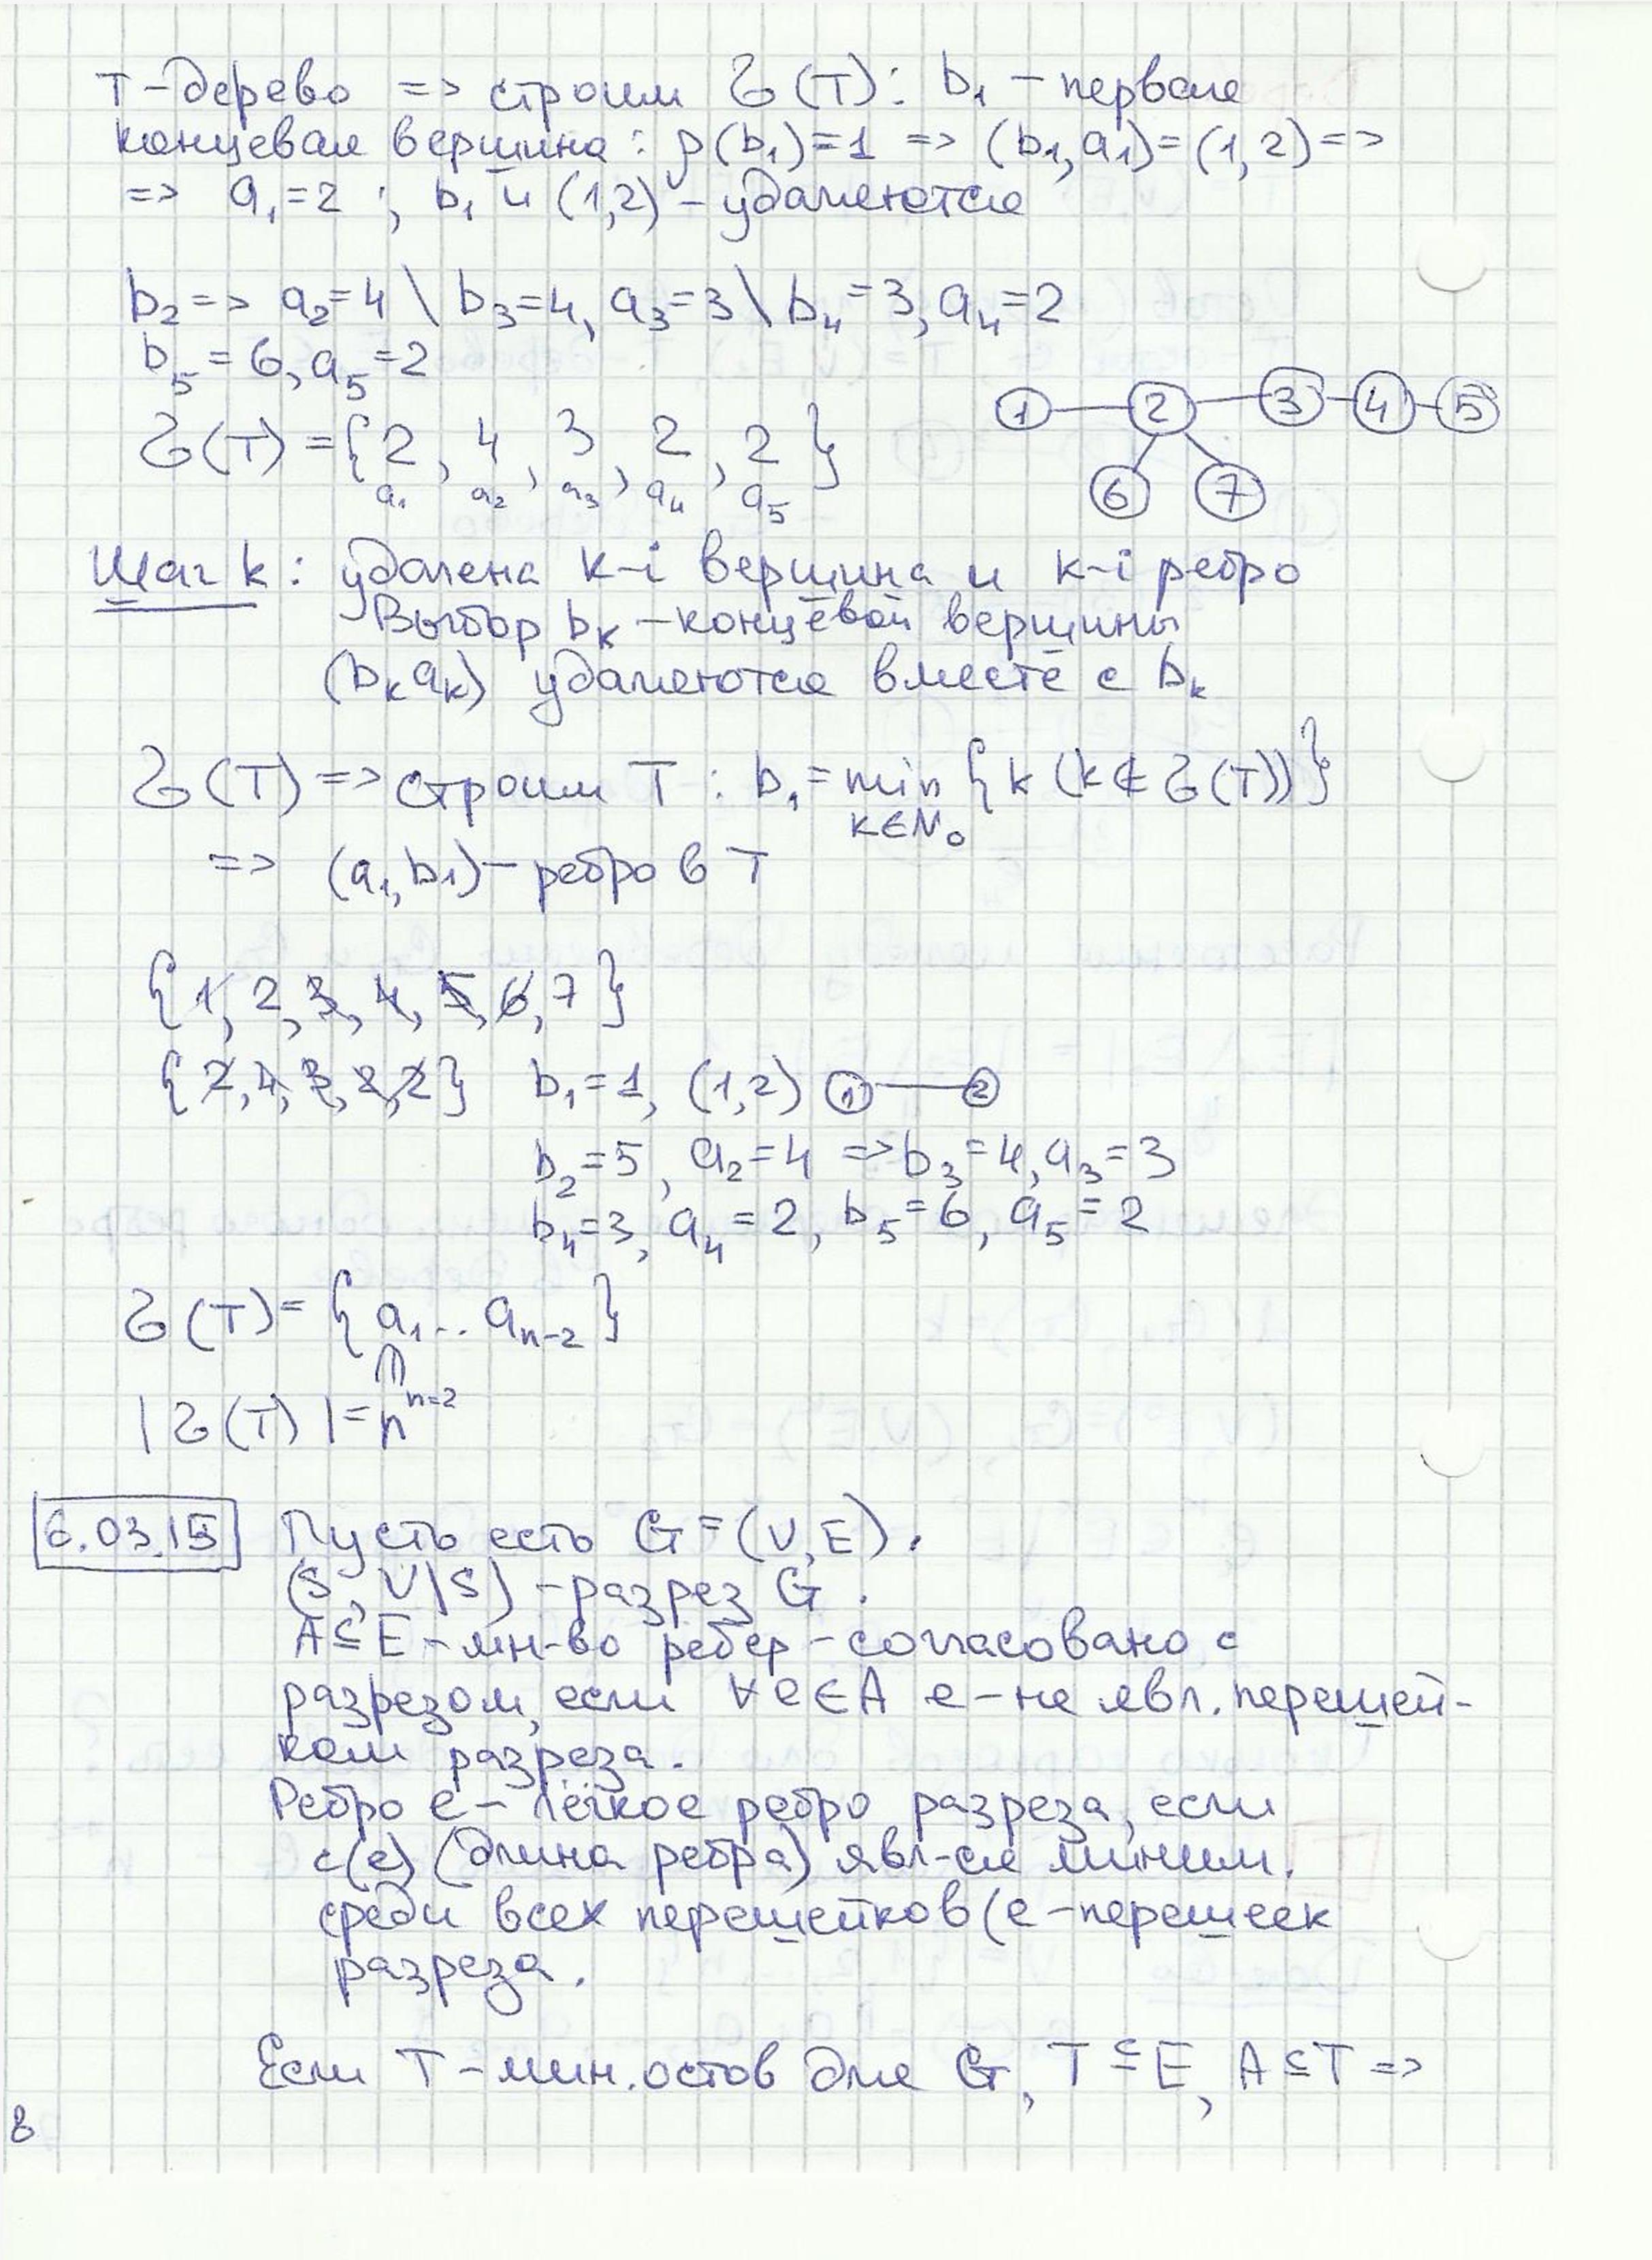 T-дерево => строим Ʒ(T): b₁ - первая
концевая вершина: ρ(b₁)=1 => (b₁,a₁)=(1,2)=>
=> a₁=2 ; b₁ и (1,2) - удаляются
b₂ => a₂=4 \ b₃=4, a₃=3 \ b₄=3, a₄=2
b₅=6, a₅=2
1 2 3 4 5
Ʒ(T)={2, 4, 3, 2, 2}
a₁ a₂ a₃ a₄ a₅
6 7
Шаг k: удалена k-i вершина и k-i ребро
Выбор bₖ - концевой вершины
(bₖ aₖ) удаляются вместе с bₖ
Ʒ(T) => строим T: b₁= min {k (k∉Ʒ(T))}
k∈N₀
=> (a₁,b₁) - ребро в T
{1, 2, 3, 4, 5, 6, 7}
{2, 4, 3, 2, 2} b₁=1, (1,2) 1 2
b₂=5, a₂=4 => b₃=4, a₃=3
b₄=3, a₄=2, b₅=6, a₅=2
Ʒ(T)= {a₁... aₙ₋₂}
⋒
|Ʒ(T)|=nⁿ⁼²
6.03.15 Пусть есть G=(V,E).
(S, V\S) - разрез G.
A⊆E - мн-во ребер - согласовано с
разрезом, если ∀e∈A e - не явл. перешей-
ком разреза.
Ребро e - лёгкое ребро разреза, если
c(e) (длина ребра) явл-ся миним.
среди всех перешейков (e - перешеек
разреза.
Если T - мин. остов для G, T⊆E, A⊆T =>
8